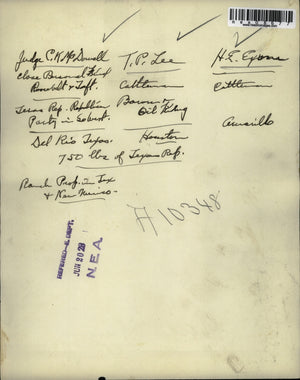 Judge C.K. McDowell
Close Personal Friend
Roosevelt & Taft.
Texas Rep. Republican
Party in
Del Rio Texas.
T. P. Lee
Cattleman
Baron &
Oil King
Houston
H.E.
Cattleman
Amarillo
750 lbs of Texas Rep.
Ranch Prop. in Tex
& New Mexico -
A10348
REFERRED-E. DEPT.
JUN 20 28
N.E.A.